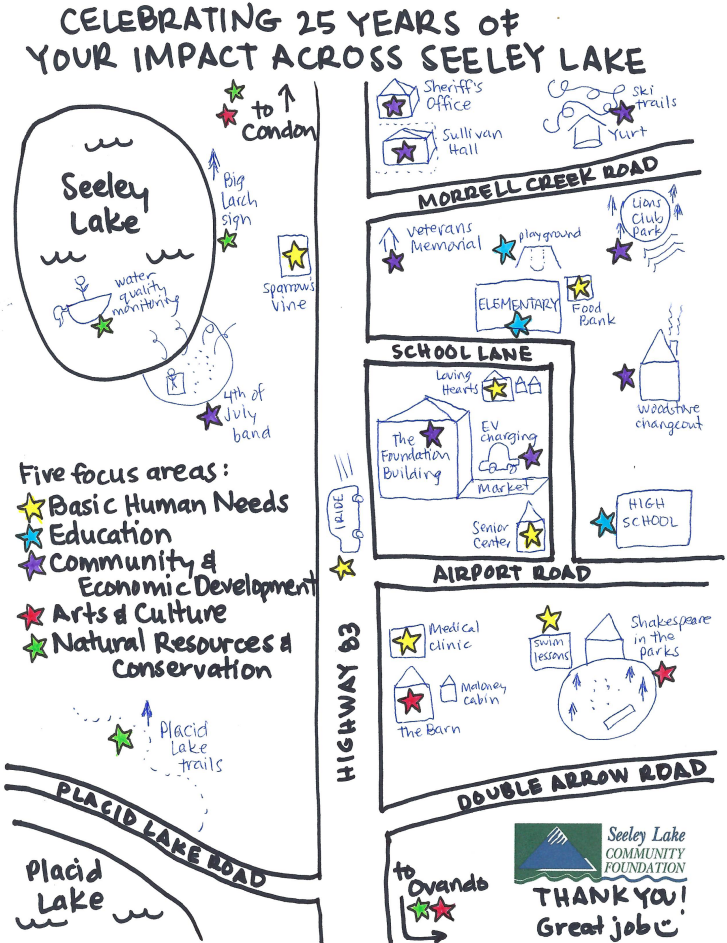 CELEBRATING 25 YEARS OF
YOUR IMPACT ACROSS SEELEY LAKE
to
Condon
Sheriff's
Office
Sullivan
Hall
Ski
trails
Yurt
MORRELL CREEK ROAD
Seeley
Lake
Big
Larch
sign
water
quality
monitoring
Sparrow's
Vine
4th of
July
band
Veterans
Memorial
playground
Lions
Club
Park
ELEMENTARY
Food
Bank
SCHOOL LANE
Loving
Hearts
The
Foundation
Building
EV
charging
Market
Senior
Center
Woodstove
changeout
HIGH
SCHOOL
AIRPORT ROAD
Five focus areas:
Basic Human Needs
Education
Community &
Economic Development
Arts & Culture
Natural Resources &
Conservation
IRIDE
HIGHWAY 83
Medical
clinic
swim
lessons
Shakespeare
in the
parks
Maloney
cabin
the Barn
DOUBLE ARROW ROAD
Placid
Lake
trails
PLACID LAKE ROAD
Placid
Lake
to
Ovando
Seeley Lake
COMMUNITY
FOUNDATION
THANK YOU!
Great job